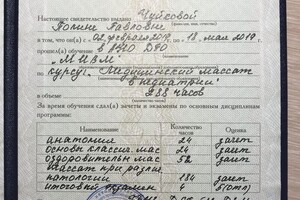 Настоящее свидетельство выдано Чуйсовой
Полине Павловне
в том, что он(а) с 02 февраля по 18 мая
прошел(а) обучение в ДПО
"
по
курсу: Медицинский массаж
в педиатрии
в объеме 288 часов
За время обучения сдал(а) зачеты и экзамены по основным дисциплинам
программы:
Наименование Количество часов Оценка
анатомия 24 зачет
основы классич. мас 24 зачет
оздоровительн мас 52 зачет
массаж при
патологии 184 зачет
итоговый экзамен 4